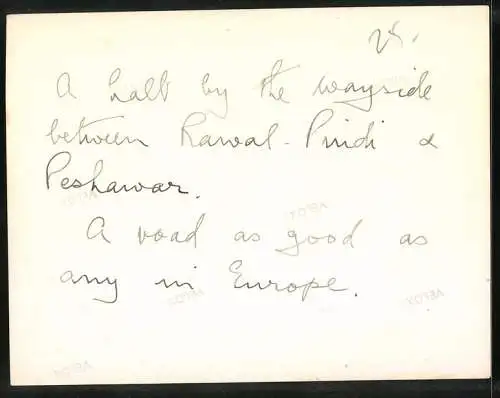 24.
A halt by the wayside
between Rawal-Pindi &
Peshawar.
A road as good as
any in Europe.
VELOX
VELOX
VELOX
VELOX
VELOX